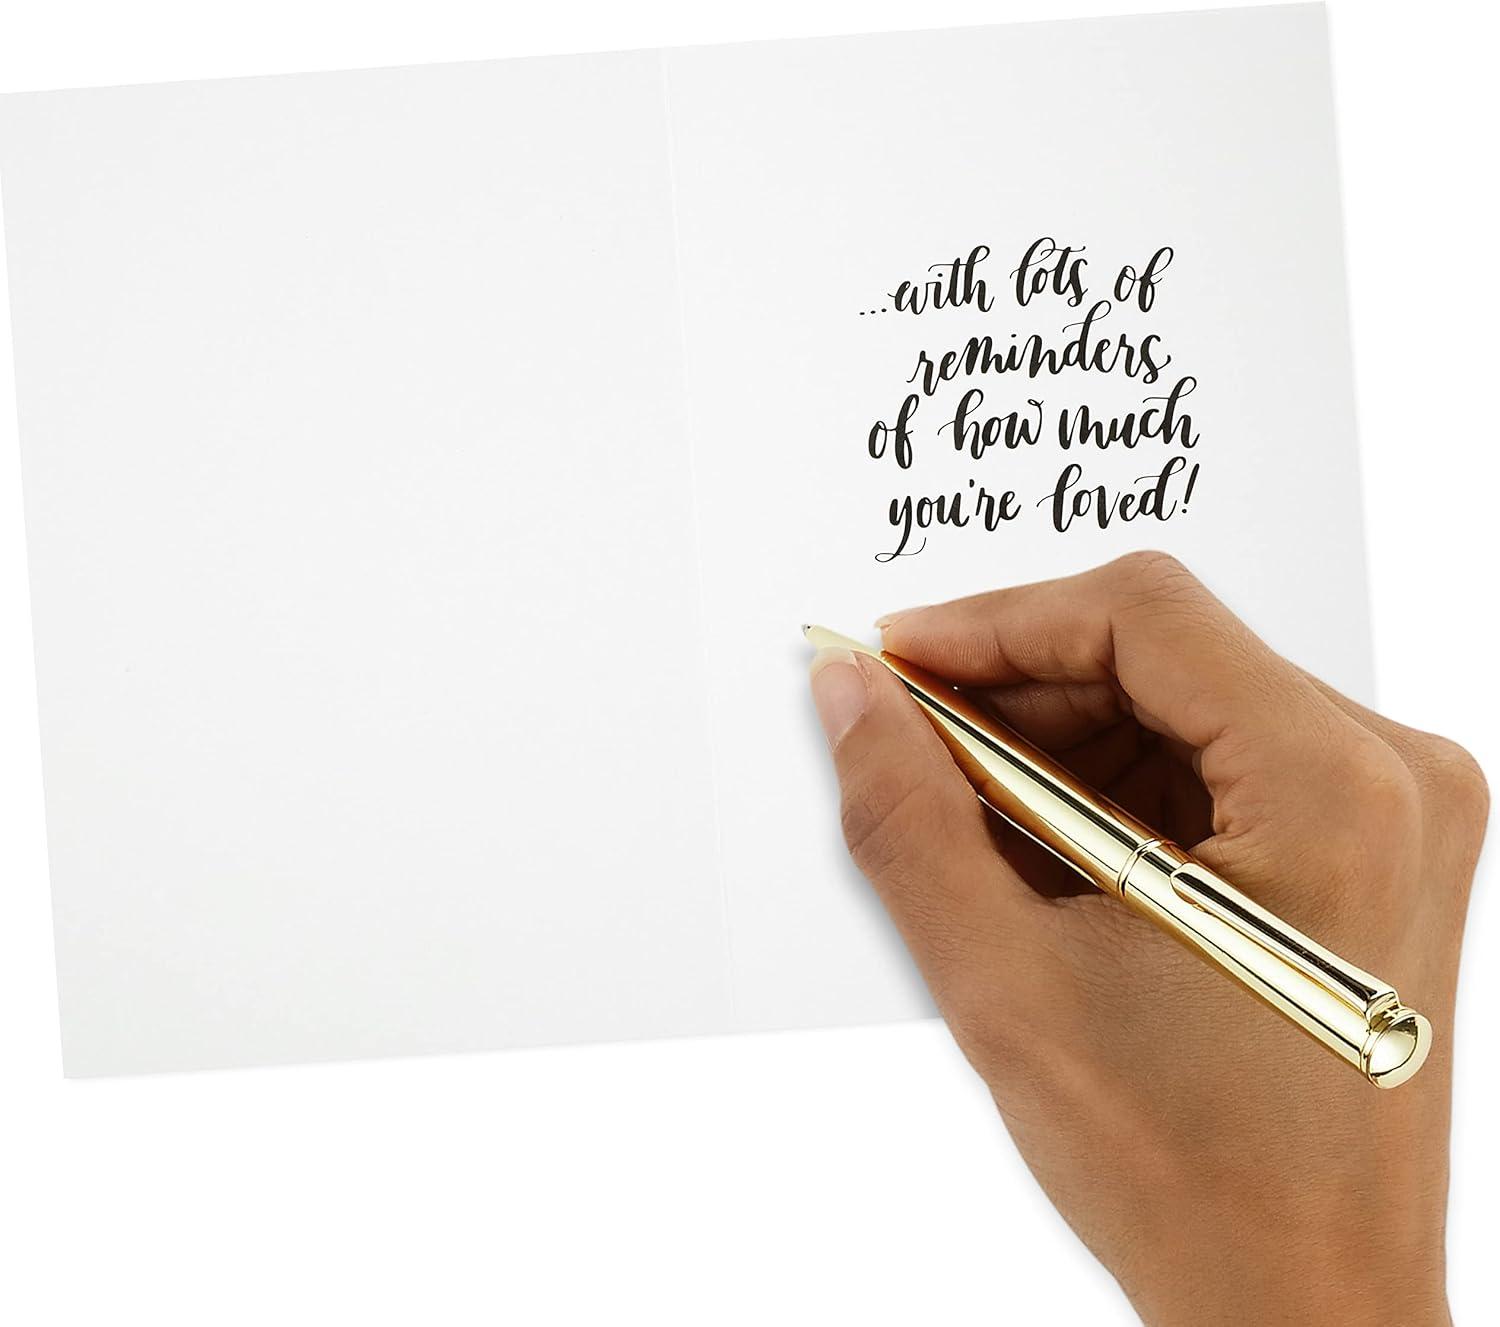 ...with lots of
reminders
of how much
you're loved!